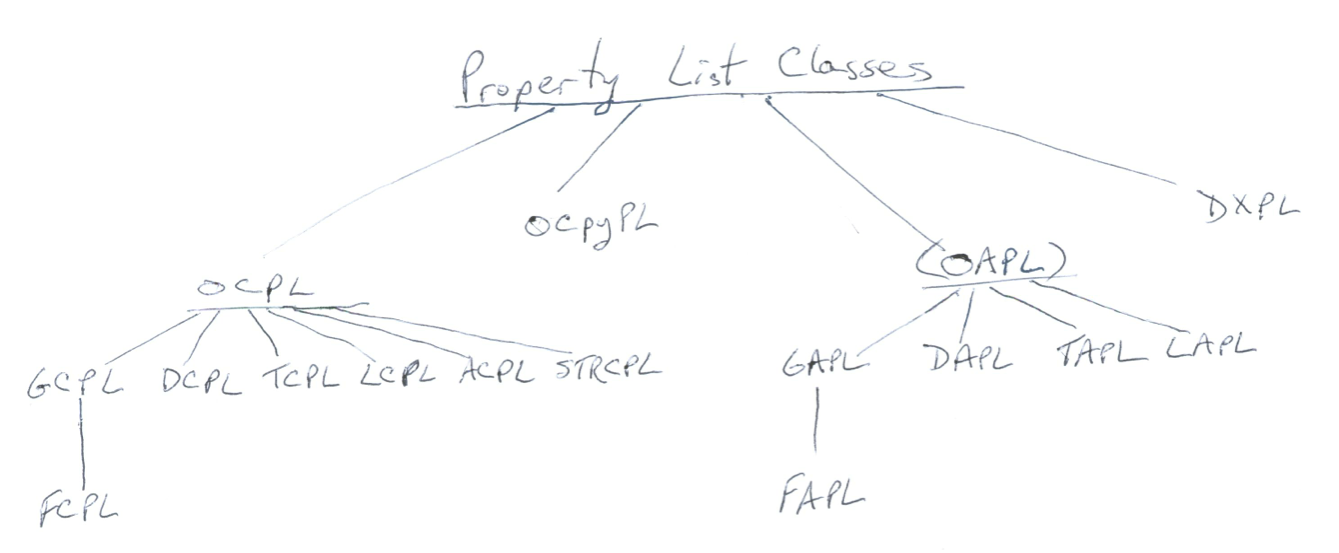 Property List Classes
DXPL
OCpyPL
(OAPL)
OCPL
GCPL DCPL TCPL LCPL ACPL STRCPL
GAPL DAPL TAPL LAPL
FCPL
FAPL